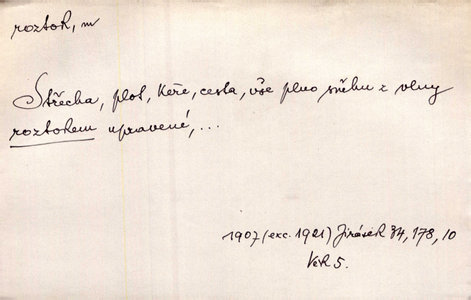 roztok, m
Střecha, plot, keře, cesta, vše plno sněhu z vlny
roztokem upravené, ...
1907 (exc. 1921) Jirásek 84, 178, 10